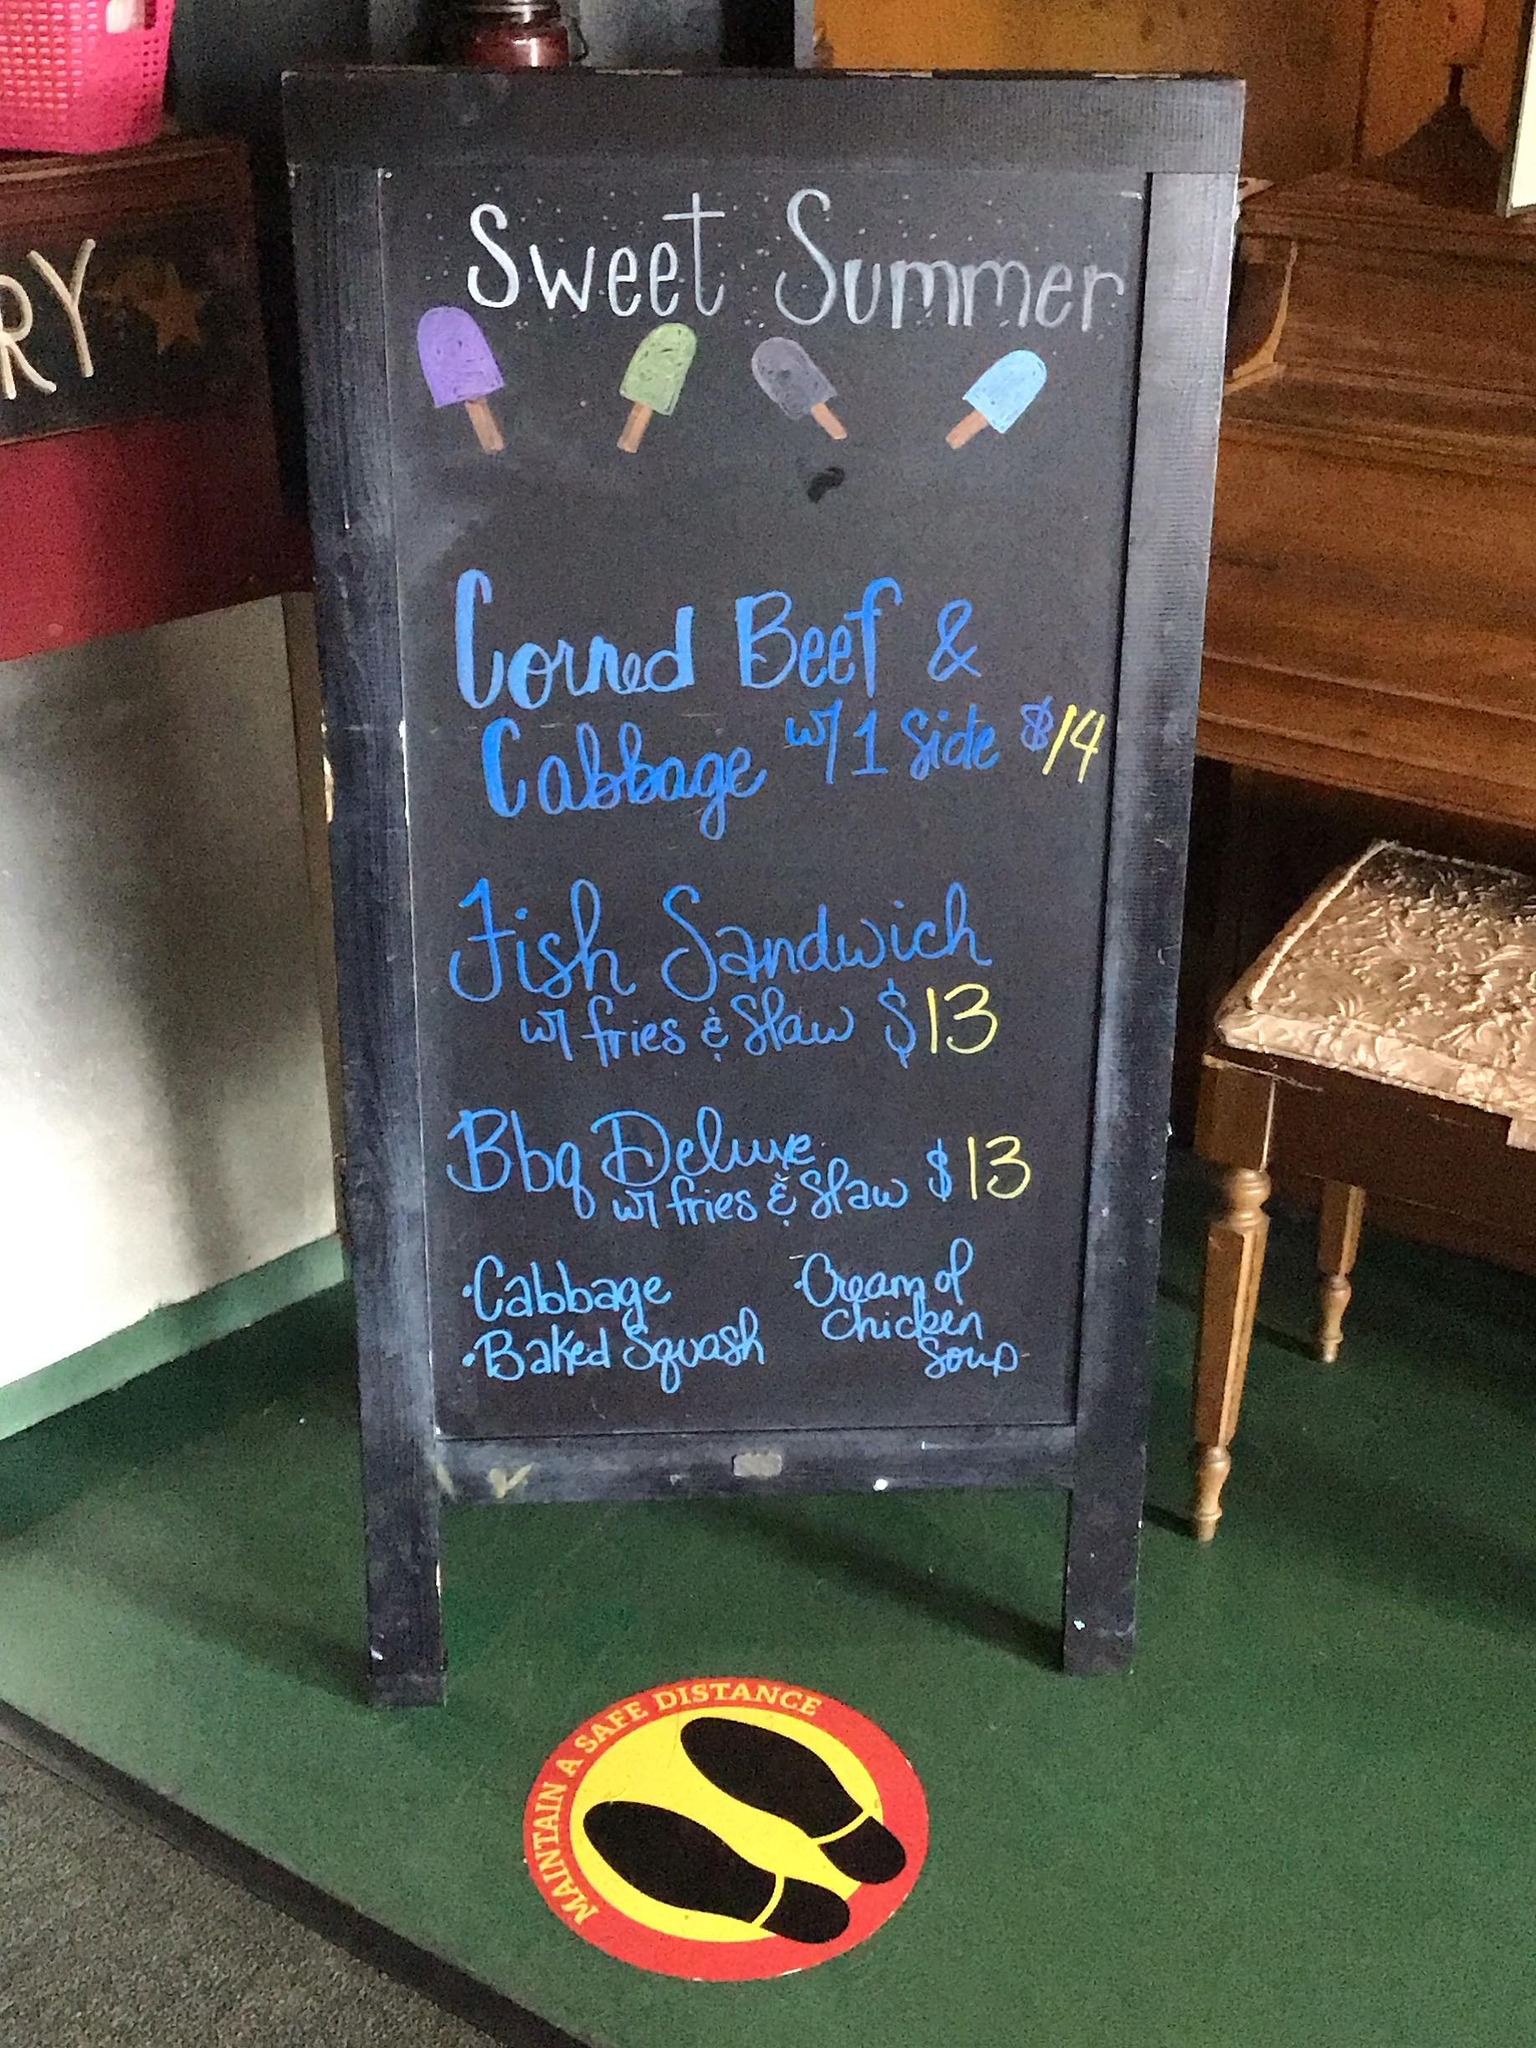 RY
Sweet Summer
Corned Beef &
Cabbage w/ 1 Side $14
Fish Sandwich
w/ fries & Slaw $13
Bbq Deluxe
w/ fries & Slaw $13
·Cabbage
·Baked Squash
·Cream of
Chicken
Soup
MAINTAIN A SAFE DISTANCE